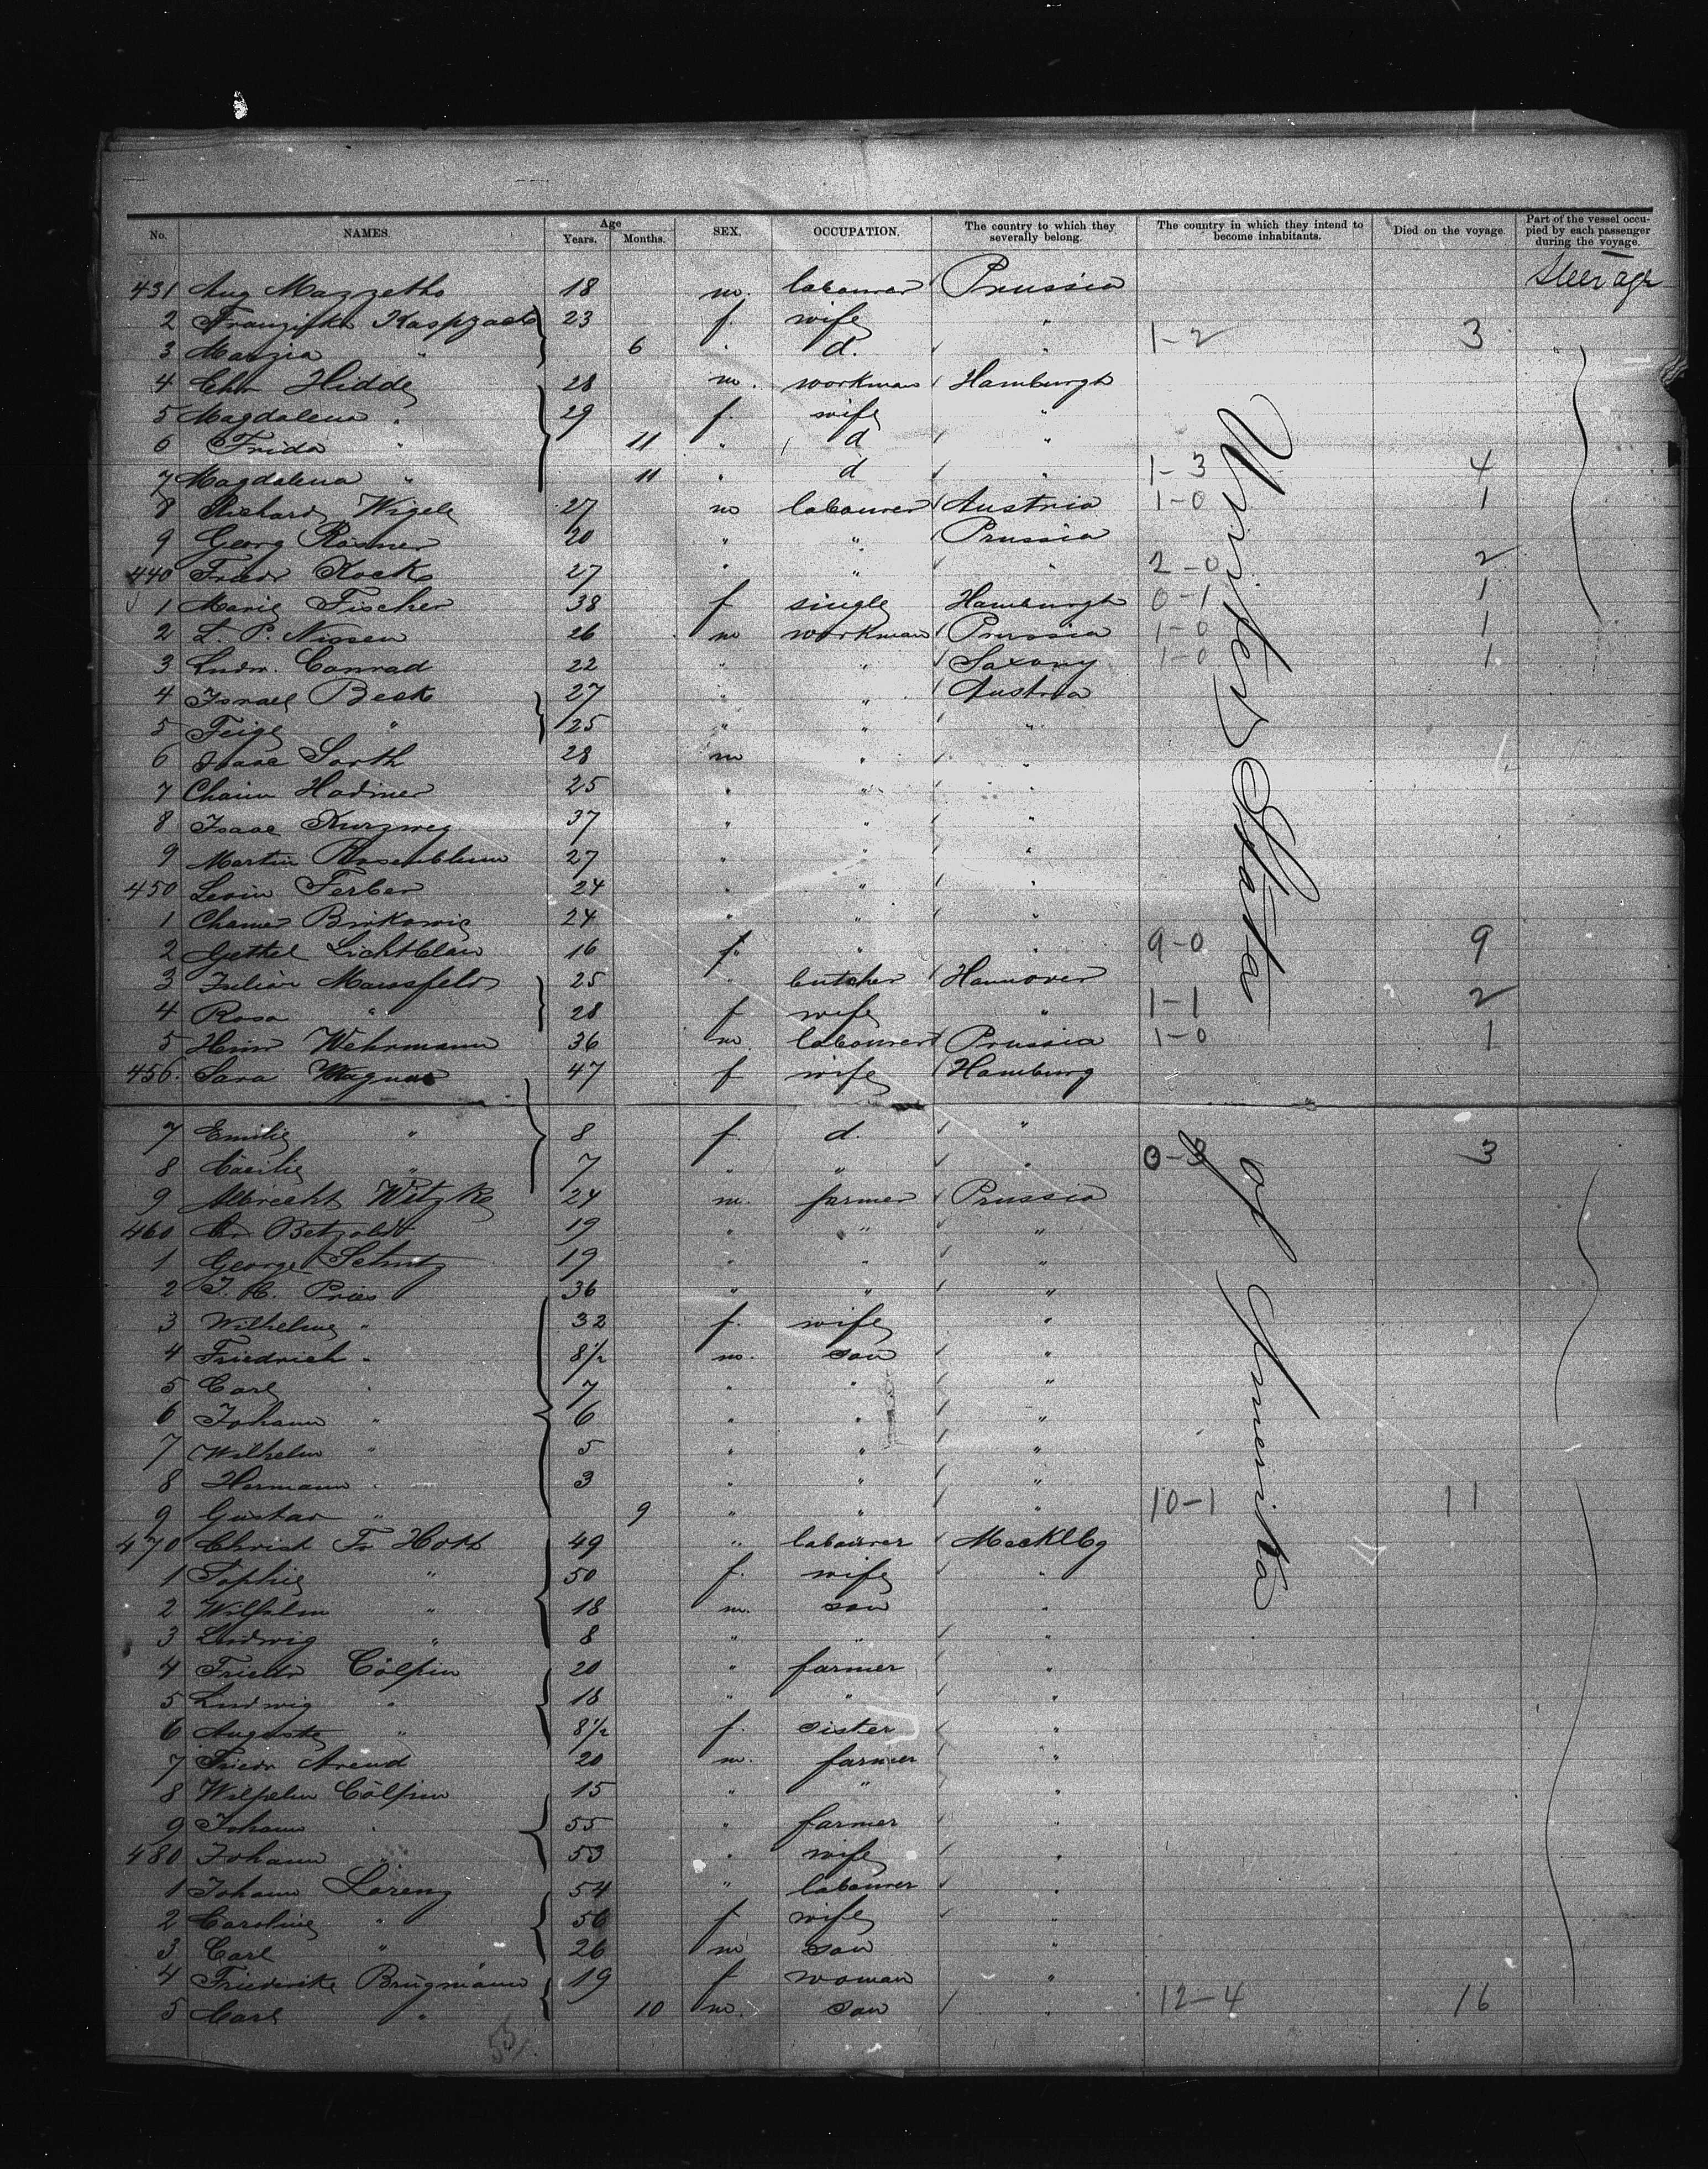 No. NAMES. Age Years. Months. SEX. OCCUPATION. The country to which they severally belong. The country in which they intend to become inhabitants. Died on the voyage. Part of the vessel occupied by each passenger during the voyage.
431 Aug Mazzetho 18 m. labourer Prussia Steerage
2 Franziska Kaspzack 23 f. wife "
3 Marzia " 6 " d. " 1-2 3
4 Chr Hidde 28 m. workman Hamburgh
5 Magdalena " 29 f. wife "
6 Frida " 11 " d "
7 Magdalena " 11 " d " 1-3 4
8 Richard Wigele 27 m labourer Austria 1-0 1
9 Georg Rösner 20 " " Prussia
440 Friedr Kock 27 " " " 2-0 2
1 Marie Fischer 38 f single Hamburgh 0-1 1
2 L. P. Nissen 26 m workman Prussia 1-0 1
3 Ludw. Conrad 22 " " Saxony 1-0 1
4 Israel Beck 27 " " Austria
5 Feige " 25 " " "
6 Isaac Sorth 28 m " "
7 Chaim Hadmer 25 " " "
8 Isaac Kurzweg 37 " " "
9 Martin Rosenblum 27 " " "
450 Levin Ferber 24 " " "
1 Chamer Binkowic 24 " " "
2 Gethel Lichtblau 16 f. " " 9-0 9
3 Julius Mansfeld 25 " butcher Hannover
4 Rosa " 28 f wife " 1-1 2
5 Heinr Wehrmann 36 m. labourer Prussia 1-0 1
456. Sara Magnus 47 f wife Hamburg
7 Emilie " 8 f. d. "
8 Cäcilie " 7 " " " 0-3 3
9 Albrecht Witzke 24 m. farmer Prussia
460 Betzoldt 19 " " "
1 George Schutz 19 " " "
2 J. H. Pries 36 " " "
3 Wilhelmine " 32 f. wife "
4 Friedrich " 8 1/2 m. son "
5 Carl " 7 " " "
6 Johann " 6 " " "
7 Wilhelm " 5 " " "
8 Hermann " 3 " " "
9 Gustav " 9 " " " 10-1 11
470 Christ Fr Hoth 49 " labourer Mecklbg
1 Sophie " 50 f. wife "
2 Wilhelm " 18 m. son "
3 Ludwig " 8 " " "
4 Friedr Cölpin 20 " farmer "
5 Ludwig " 18 " " "
6 Auguste " 8 1/2 f. sister "
7 Friedr Arend 20 m. farmer "
8 Wilhelm Cölpin 15 " " "
9 Johann " 55 " farmer "
480 Johann " 53 " wife "
1 Johann Lorenz 54 " labourer "
2 Caroline " 56 f wife "
3 Carl " 26 m son "
4 Friederike Brügmann 19 f woman "
5 Carl " 10 m. son " 12-4 16
United States of America
55